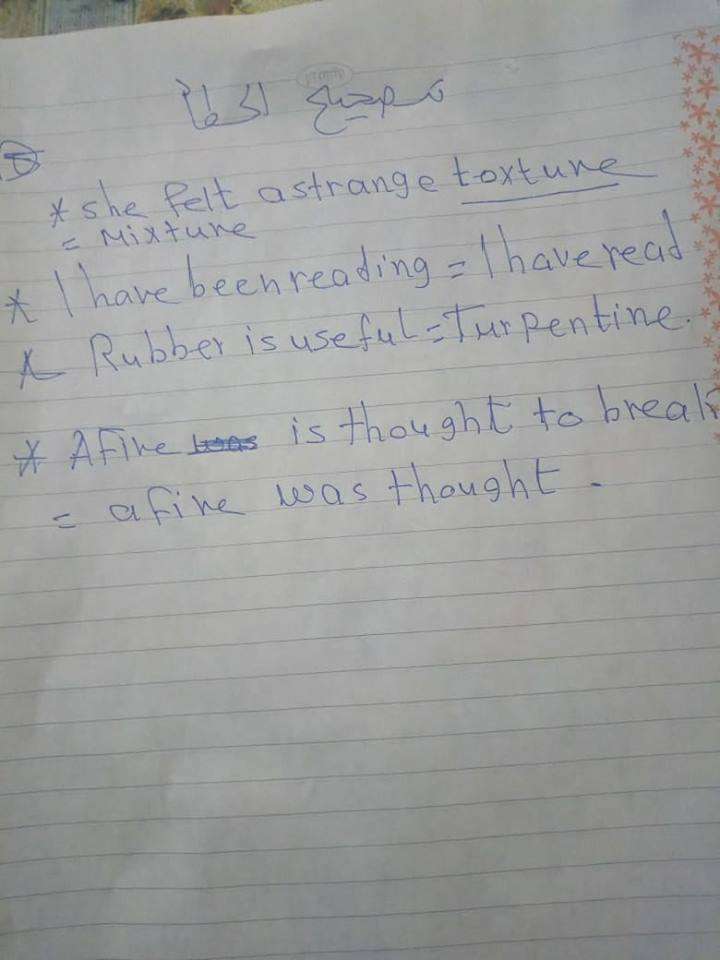 تصحيح الخطأ
* she felt a strange toxture
= Mixture
* I have been reading = I have read
* Rubber is useful = Turpentine.
* A fire was is thought to break
= a fire was thought.